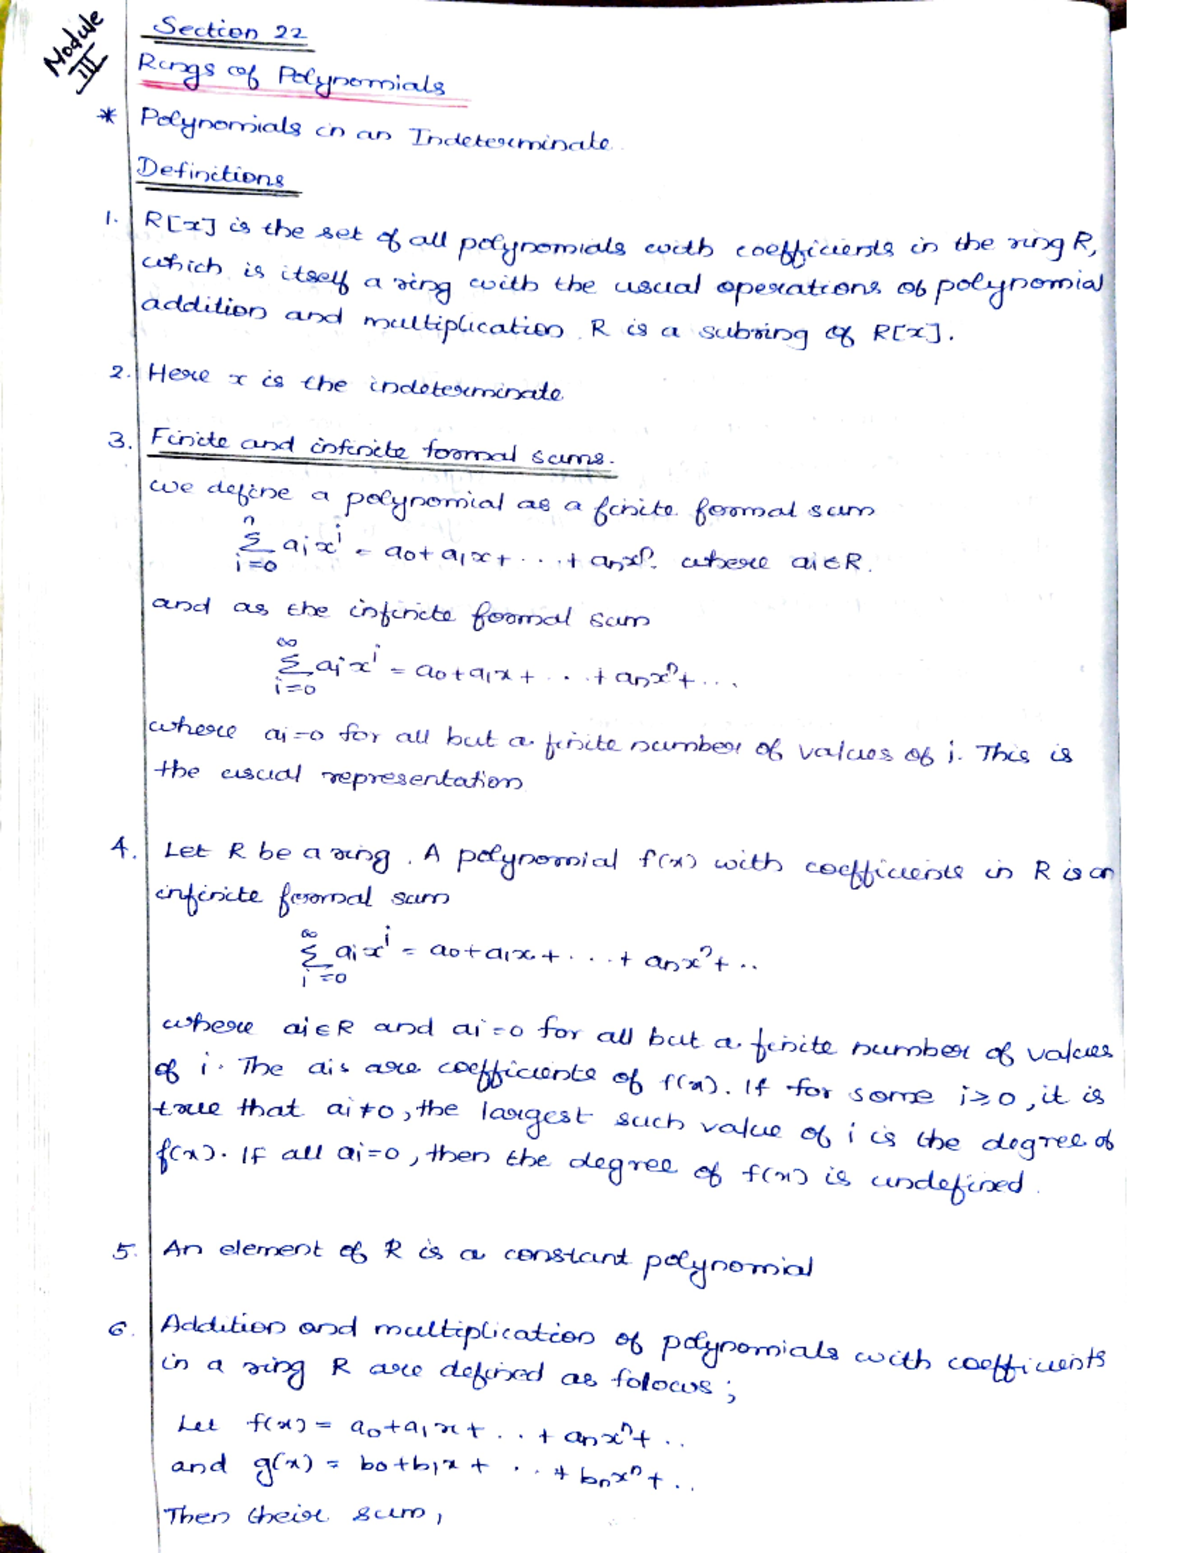 Module
III
Section 22
Rings of Polynomials
* Polynomials in an Indeterminate.
Definitions
1. R[x] is the set of all polynomials with coefficients in the ring R,
which is itself a ring with the usual operations of polynomial
addition and multiplication. R is a subring of R[x].
2. Here x is the indeterminate
3. Finite and infinite formal sums.
we define a polynomial as a finite formal sum
n
Σ aᵢxⁱ = a₀+a₁x+...+aₙxⁿ. where aᵢ∈R.
i=0
and as the infinite formal sum
∞
Σ aᵢxⁱ = a₀+a₁x+...+aₙxⁿ+...
i=0
where aᵢ=0 for all but a finite number of values of i. This is
the usual representation
4. Let R be a ring. A polynomial f(x) with coefficients in R is an
infinite formal sum
∞
Σ aᵢxⁱ = a₀+a₁x+...+aₙxⁿ+..
i=0
where aᵢ∈R and aᵢ=0 for all but a finite number of values
of i. The aᵢs are coefficients of f(x). If for some i≥0, it is
true that aᵢ≠0, the largest such value of i is the degree of
f(x). If all aᵢ=0, then the degree of f(x) is undefined.
5. An element of R is a constant polynomial
6. Addition and multiplication of polynomials with coefficients
in a ring R are defined as folows;
Let f(x) = a₀+a₁x+...+aₙxⁿ+..
and g(x) = b₀+b₁x+...+bₙxⁿ+..
Then their sum,